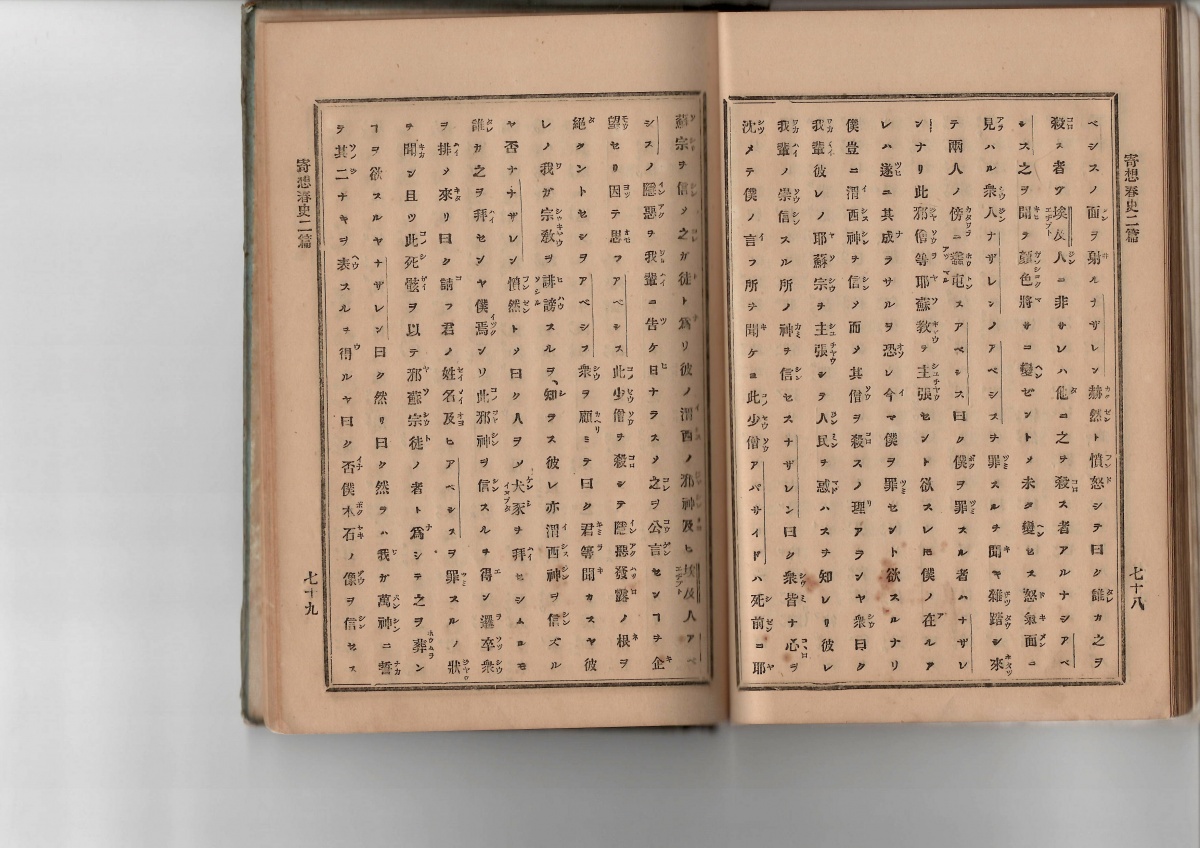 寄想春史二篇
七十八
ベシスノ面ヲ射ルナザレン赫然ト憤怒シテ曰ク誰カ之ヲ
殺ス者ゾ埃及人ニ非サレハ他ニ之ヲ殺ス者アルナシアベ
シス之ヲ聞テ顔色將サニ變ゼントメ未タ變セス怒氣面ニ
見ハル衆人ナザレンノアベシスヲ罪スルヲ聞キ雜踏シ來
テ兩人ノ傍ニ屯スアベシス曰ク僕ヲ罪スル者ハナザレ
ンナリ此邪僧等耶蘇敎ヲ主張セント欲スレ𪜈僕ノ在ルア
レハ遂ニ其成ラサルヲ恐レ今マ僕ヲ罪セント欲スルナリ
僕豈ニ渭西神ヲ信メ而メ其僧ヲ殺スノ理アランヤ衆曰ク
我輩彼レノ耶蘇宗ヲ主張シテ人民ヲ惑ハスヲ知レリ彼レ
我輩ノ崇信スル所ノ神ヲ信セスナザレン曰ク衆皆ナ心ヲ
沈メテ僕ノ言フ所ヲ聞ケヨ此少僧アパサイドハ死前ニ耶
蘇宗ヲ信メ之ガ徒ト爲リ彼ノ渭西ノ邪神及ヒ埃及人アベ
シスノ隱惡ヲ我輩ニ告ケ日ナラスメ之ヲ公言センヿヲ企
望セリ因テ思フアベシス此少僧ヲ殺シテ隱惡發露ノ根ヲ
絕タントセシヲアベシス衆ヲ顧ミテ曰ク君等聞カスヤ彼
レノ我ガ宗敎ヲ誹謗スルヲ、知ラス彼レ亦渭西神ヲ信ズル
ヤ否ナナザレン憤然トメ曰ク人ヲメ犬豕ヲ拜セシムルモ
誰カ之ヲ拜センヤ僕焉ンソ此邪神ヲ信スルヲ得ン邏卒衆
ヲ排メ來リ曰ク請フ君ノ姓名及ヒアベシスヲ罪スルノ狀
ヲ聞ン且ツ此死骸ヲ以テ邪蘇宗徒ノ者ト爲シテ之ヲ葬ン
ヿヲ欲スルヤナザレン曰ク然リ曰ク然ラハ我ガ萬神ニ誓
テ其二ナキヲ表スルヲ得ルヤ曰ク否僕木石ノ像ヲ信セス
寄想春史二篇
七十九